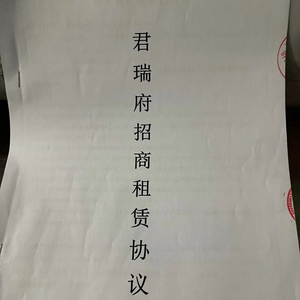 君瑞府招商租赁协议